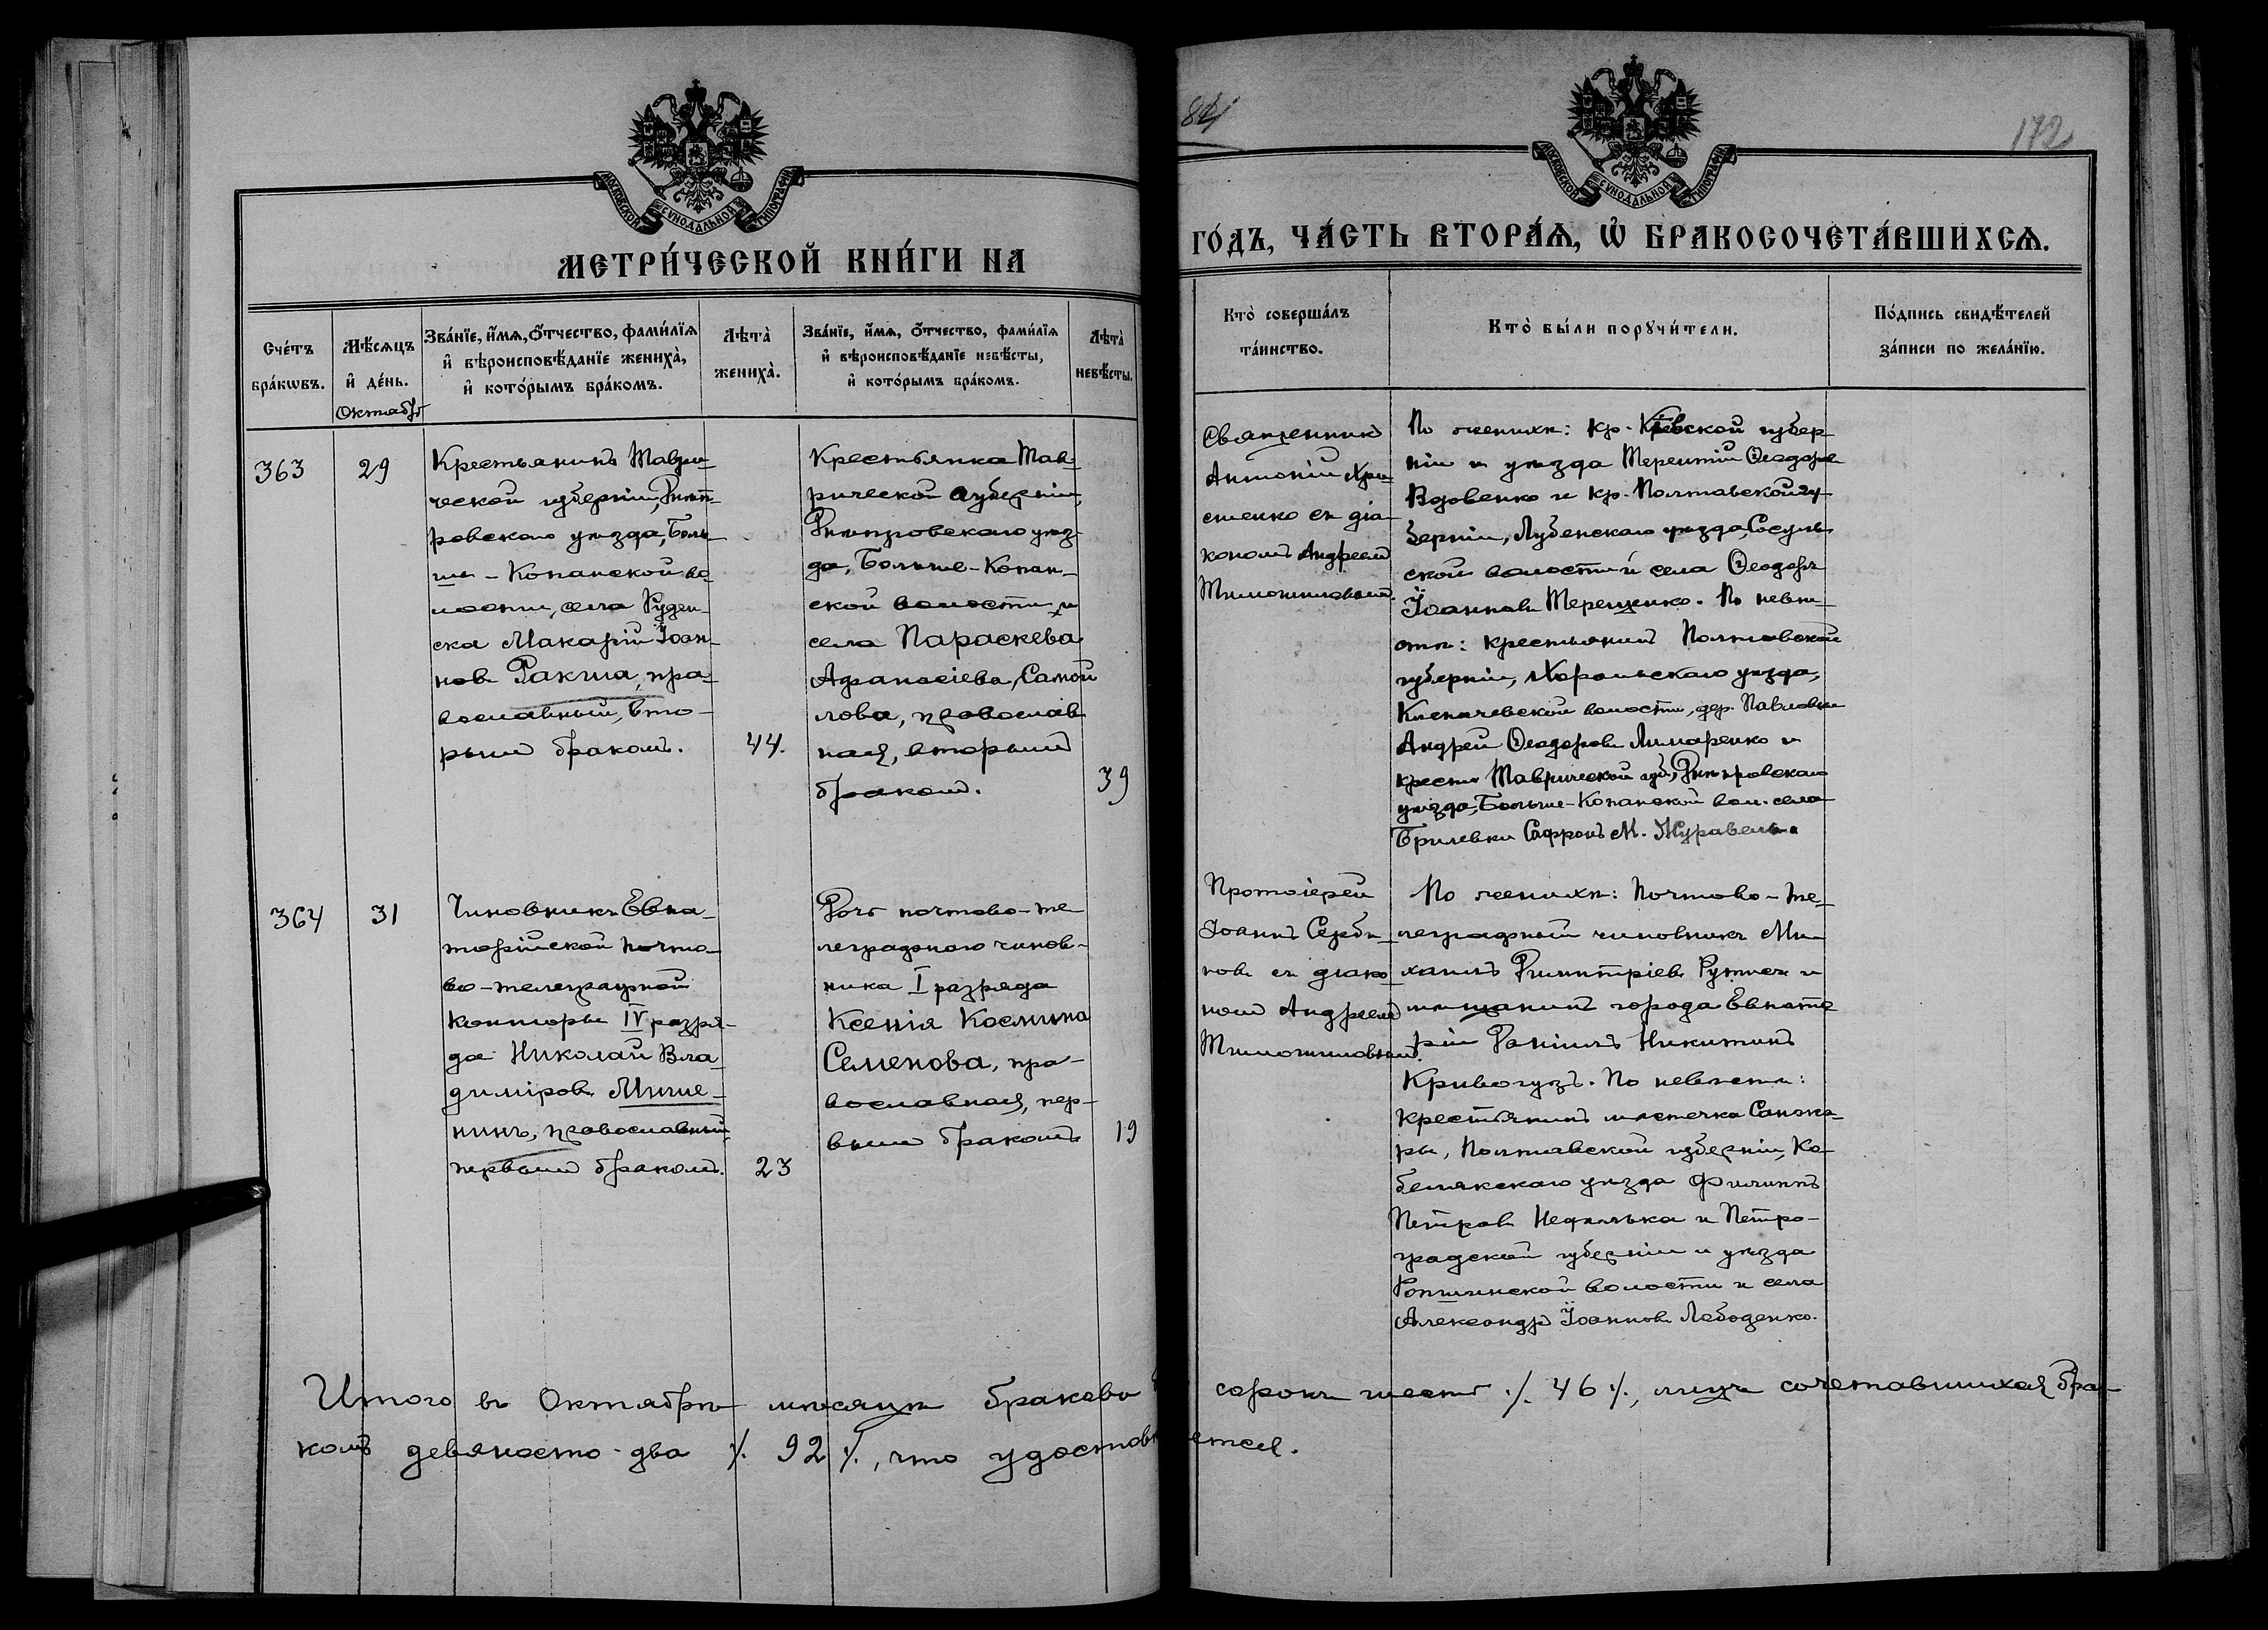 82
172
МОСКОВСКОЙ СѴНОДАЛЬНОЙ ТИПОГРАФІИ
МОСКОВСКОЙ СѴНОДАЛЬНОЙ ТИПОГРАФІИ
МЕТРИ́ЧЕСКОЙ КНИ́ГИ НА
ГО́ДЪ, ЧА́СТЬ ВТОРА́Ѧ, Ѽ БРАКОСОЧЕТА́ВШИХСѦ.
Сче́тъ
бра́кѡвъ.
Мѣ́сѧцъ
и҆ де́нь.
Октябрь
Зва́нїе, и҆́мѧ, ѻ҆́тчество, фами́лїѧ
и҆ вѣроисповѣ́данїе жениха̀,
и҆ кото́рымъ бра́комъ.
Лѣта̀
жениха̀.
Зва́нїе, и҆́мѧ, ѻ҆́тчество, фами́лїѧ
и҆ вѣроисповѣ́данїе невѣ́сты,
и҆ кото́рымъ бра́комъ.
Лѣта̀
невѣ́сты.
Кто̀ соверша́лъ
та́инство.
Кто̀ бы́ли порꙋчи́тели.
По́дпись свидѣ́телей
за́писи по жела́нїю.
363
29
Крестьянинъ Таври-
ческой губерніи, Днѣп-
ровскаго уѣзда, Боль-
ше-Копанской во-
лости, села Руден-
ска Макарій Іоан-
новъ Ракша, пра-
вославный, вто-
рымъ бракомъ.
44.
Крестьянка Тав-
рической губерніи,
Днѣпровскаго уѣз-
да, Больше-Копан-
ской волости и
села Параскева
Афанасіева Самой
лова, православ
ная, вторымъ
бракомъ.
39
Священникъ
Антоній Хри-
стенко съ діа-
кономъ Андреемъ
Тимошиловымъ.
По женихѣ: кр. Кіевской губер-
ніи и уѣзда Терентій Ѳеодоровъ
Вдовенко и кр. Полтавской гу-
берніи, Лубенскаго уѣзда,
ской волости и села Ѳеодоръ
Іоанновъ Терещенко. По невѣ-
стѣ: крестьянинъ Полтавской
губерніи, Хорольскаго уѣзда,
волости, дер. Павловки
Андрей Ѳеодоровъ Лимаренко и
крест. Таврической губ., Днѣпровскаго
уѣзда, Больше-Копанской вол. села
Брилевки Софронъ М. Журавель.
364
31
Чиновникъ Евпа-
торійской почто-
во-телеграфной
конторы IV разря-
да Николай Вла-
диміровъ Мише-
нинъ, православный,
первымъ бракомъ.
23
Дочь почтово-те
леграфнаго чинов-
ника I разряда
Ксенія Космина
Семенова, пра-
вославная, пер-
вымъ бракомъ
19
Протоіерей
Іоаннъ Серби-
новъ съ діако
номъ Андреемъ
Тимошиловымъ.
По женихѣ: Почтово-те-
леграфный чиновникъ Ми-
хаилъ Димитріевъ и
мѣщанинъ города Евпато
ріи Даніилъ Никитинъ
Кривогузъ. По невѣстѣ:
крестьянинъ мѣстечка Санжа-
ры, Полтавской губерніи, Ко-
белякскаго уѣзда Филиппъ
Петровъ Недилька и Петро-
градской губерніи и уѣзда
Ропшинской волости и села
Александръ Іоанновъ Лебоденко.
Итого въ Октябрѣ мѣсяцѣ браковъ сорокъ шесть ./. 46 ./., лицъ сочетавшихся бра-
комъ девяносто два ./. 92 ./., что удостовѣряется.